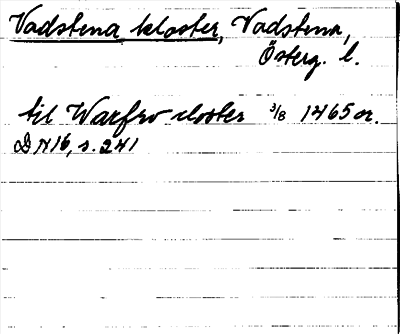 Vadstena kloster, Vadstena,
Österg. l.
til Warfrv closter 3/8 1465 or.
DN 16, s. 241